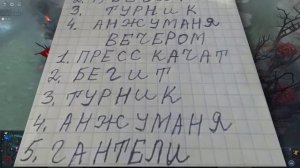 3. ТУРНИК
4. АНЖУМАНЯ
ВЕЧЕРОМ
1. ПРЕСС КАЧАТ
2. БЕГИТ
3. ТУРНИК
4. АНЖУМАНЯ
5. ГАНТБЛИ